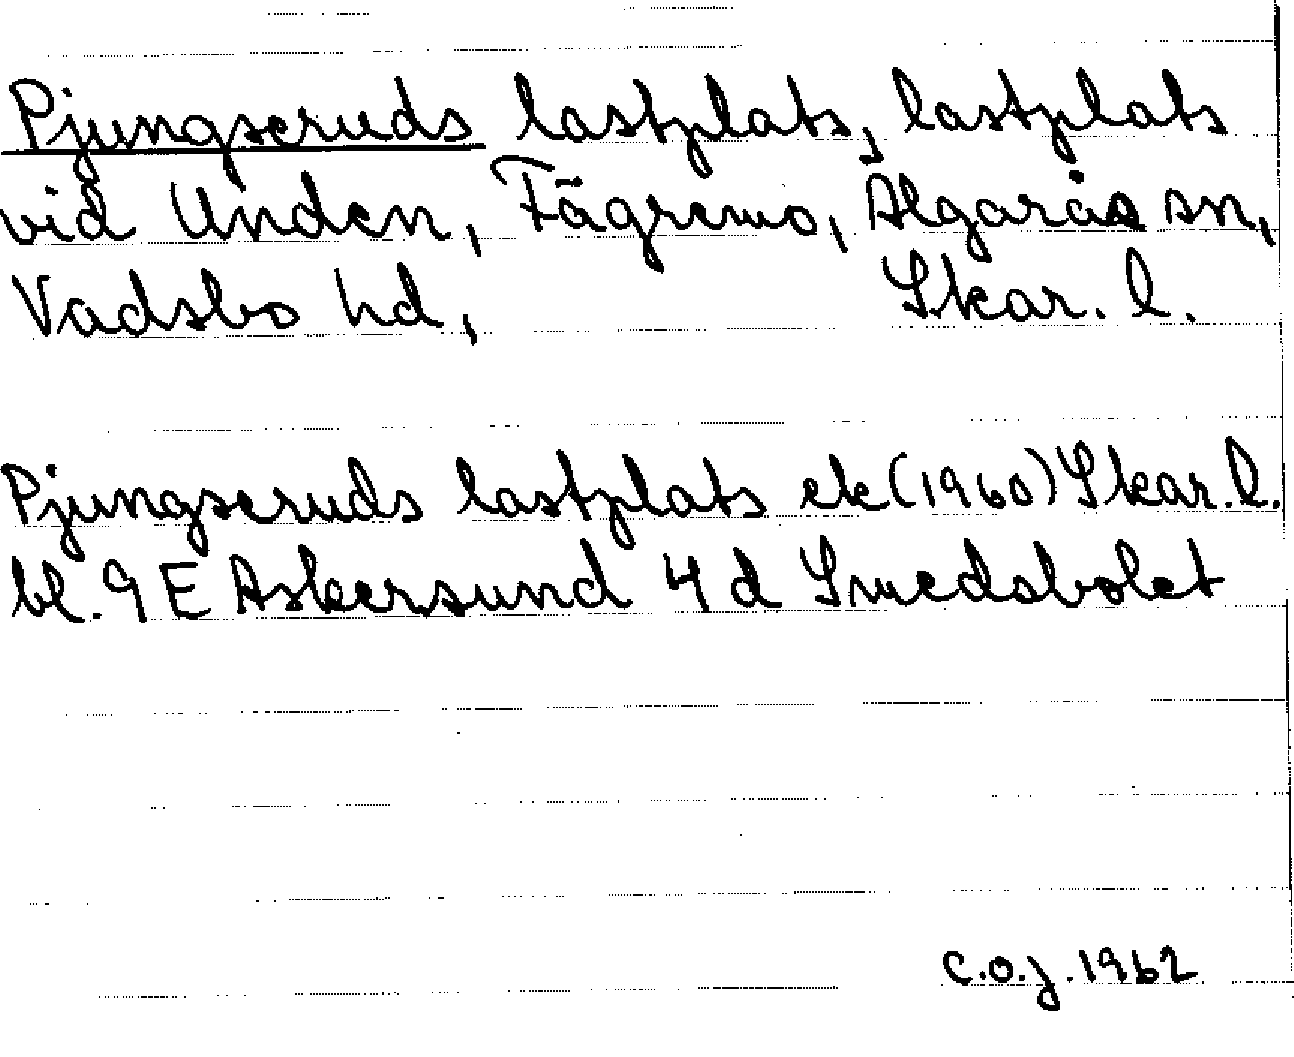 Pjungseruds lastplats, lastplats
vid Unden, Fägremo, Älgarås sn,
Vadsbo hd, Skar. l.
Pjungseruds lastplats ek (1960) Skar. l.
bl. 9 E Askersund 4 d Smedsbolet
C.O.J. 1962